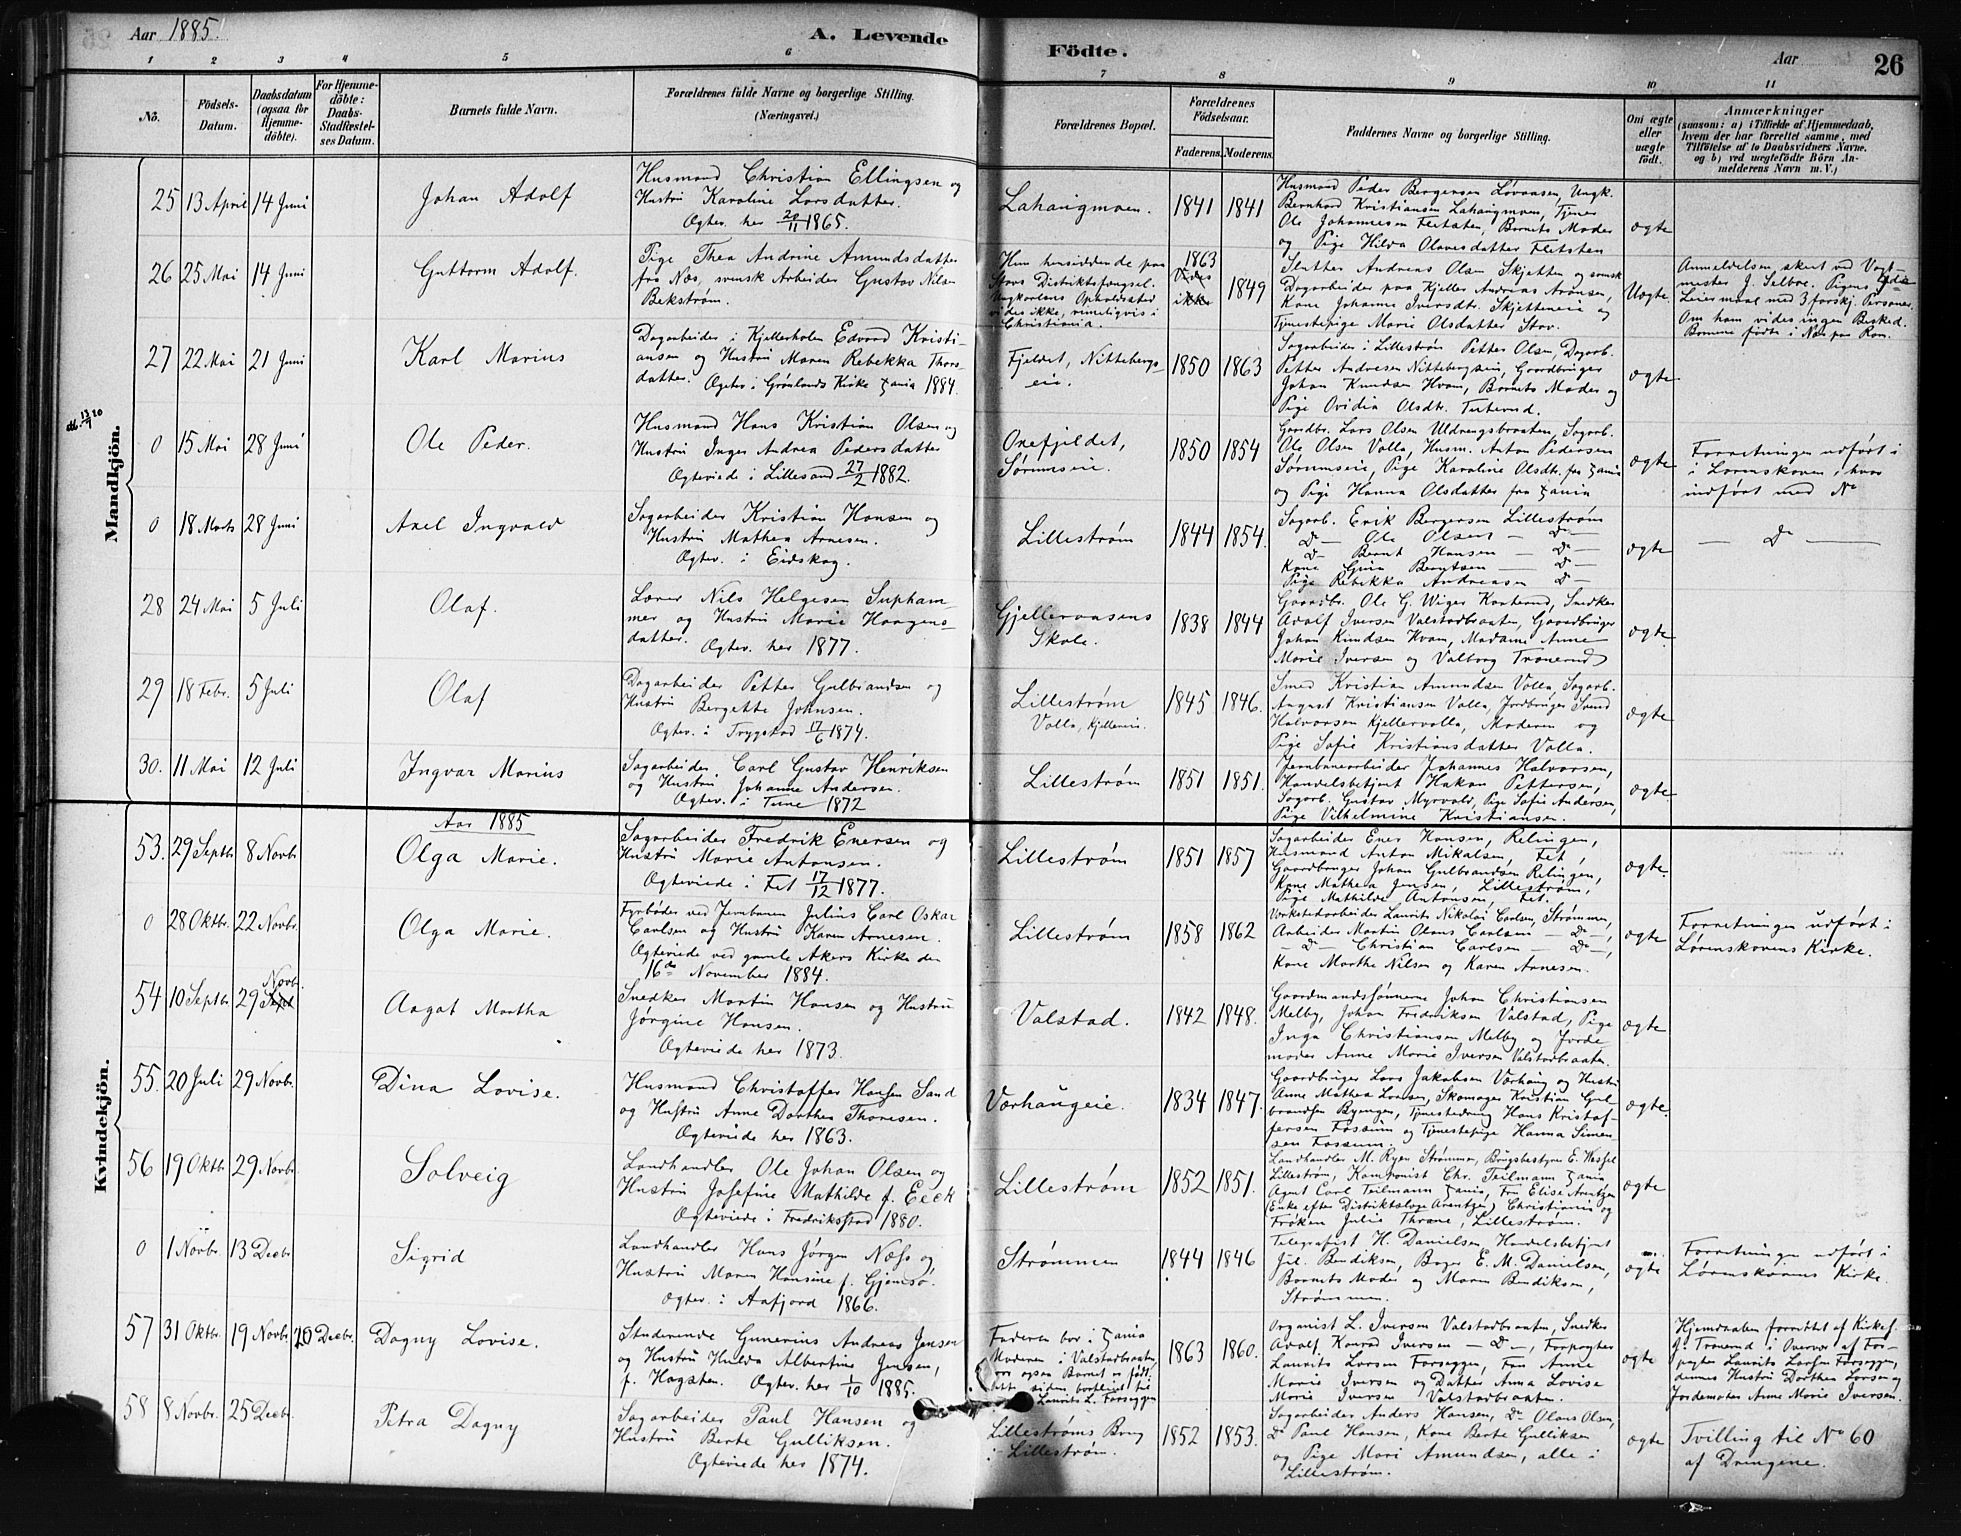 Aar 1885.
A. Levende Födte.
Aar 26
1 2 3 4 5 6 7 8 9 10 11
No. Födsels-Datum. Daabsdatum (ogsaa for Hjemmedöbte). For Hjemmedöbte: Daabs-Stadfæstelses Datum. Barnets fulde Navn. Forældrenes fulde Navne og borgerlige Stilling. (Næringsvei.) Forældrenes Bopæl. Forældrenes Födselsaar. Faderens. Moderens. Faddernes Navne og borgerlige Stilling. Om ægte eller uægte födt. Anmærkninger (saasom: a) i Tilfælde af Hjemmedaab, hvem der har forrettet samme, med Tilföielse af to Daabsvidners Navne, og b) ved uægtefödte Börn Anmelderens Navn m. V.)
Mandkjön.
25 13 April 14 Juni Johan Adolf
Husmand Christian Ellingsen og
Hustru Karoline Larsdatter.
Ægtev. her 20/11 1865.
Lahaugmoen. 1841 1841
Husmand Peder Bergersen Løvaasen, Ungk.
Bernhard Kristiansen Lahaugmoen, Tjener
Ole Johannesen Fletsten, Barnets Moder
og Pige Hilda Olavesdatter Fletsten
ægte
26 25 Mai 14 Juni Guttorm Adolf.
Pige Thea Andrine Amundsdatter
fra Næs, svensk Arbeider Gustav Nilsen
Bekstrøm.
Hun hensiddende paa
Stavs Distriktsfængsel.
Ungkarlens Opholdssted
vides ikke, rimeligvis i
Christiania.
1863
Vides
ikke 1849
Slutter Andreas Olsen Skjetten og svensk
Dagarbeider paa Kjeller Andreas Aronsen,
Kone Johanne Iversdtr. Skjetteneie og
Tjenestepige Marie Olsdatter Stav.
Uægte.
Anmeldelsen skeet ved Vagt-
mester J. Selboe. Pigens 4de
Leiermaal med 3 forskj. Personer.
Om ham vides ingen Besked.
27 22 Mai 21 Juni Karl Marius
Dagarbeider i Kjellerholen Edvard Kristi-
ansen og Hustru Maren Rebekka Thors-
datter. Ægtev. i Grønlands Kirke Xania 1884.
Fjeldet, Nittebergs-
eie. 1850 1863
Sagarbeider i Lillestrøm Petter Olsen, Dagarb.
Petter Andresen Nittebergseie, Gaardbruger
Johan Knudsen Hvam, Barnets Moder og
Pige Ovidia Olsdtr. Tuterud.
ægte
0 15 Mai 28 Juni Ole Peder.
Husmand Hans Kristian Olsen og
Hustru Inger Andrea Pedersdatter
Ægteviede i Lillesand 27/2 1882.
Oxefjeldet,
Sørumseie. 1850 1854
Gaardbr. Lars Olsen Uldrengsbraaten, Sagarb.
Ole Olsen Volla, Husm. Anton Pedersen
Sørumseie, Pige Karoline Olsdt. fra Xania
og Pige Hanna Olsdatter fra Xania
ægte
Forretningen udført i
i Lørnskoven, hvor
indført med No
0 18 Marts 28 Juni Axel Ingvald
Sagarbeider Kristian Hansen og
Hustru Mathea Arnesen.
Ægtev. i Eidskog.
Lillestrøm 1844 1854.
Sagarb. Erik Bergersen Lillestrøm
Do Ole Olsen — Do —
Do Bernt Hansen — Do —
Kone Gina Berntsen — Do —
Pige Rebekka Andreasen Do —
ægte
— Do —
28 24 Mai 5 Juli Olaf.
Lærer Nils Helgesen Supham-
mer og Hustru Marie Haagens-
datter. Ægtev. her 1877.
Gjelleraasens
Skole. 1838 1844
Gaardbr. Ole G. Wiger Kaaterud, Snedker
Adolf Iversen Valstadbraaten, Gaardbruger
Johan Knudsen Hvam, Madame Anne
Marie Iversen og Valborg Tranerud
ægte
29 18 Febr. 5 Juli Olaf
Dagarbeider Petter Gulbrandsen og
Hustru Bergette Johnsen.
Ægtev. i Trygstad 17/6 1874.
Lillestrøm
Volla, Kjellereie. 1845 1846.
Smed Kristian Amundsen Volla, Sagarb.
August Kristiansen Volla, Jordbruger Svend
Halvorsen Kjellervolla, Moderen og
Pige Sofie Kristiansdatter Volla.
ægte
30. 11 Mai 12 Juli Ingvar Marius
Sagarbeider Carl Gustav Henriksen
og Hustru Johanne Andersen.
Ægtev. i Tune 1872
Lillestrøm 1851 1851.
Jernbanearbeider Johannes Halvorsen,
Handelsbetjent Hakon Pettersen,
Sagarb. Gustav Myrvold, Pige Sofie Andersen,
Pige Vilhelmine Kristiansen.
ægte.
Kvindekjön.
Aar 1885
53. 29 Septbr 8 Novbr Olga Marie.
Sagarbeider Fredrik Enersen og
Hustru Marie Antonsen.
Ægteviede i Fet 17/12 1877.
Lillestrøm 1851 1857
Sagarbeider Ener Hansen, Relingen,
Husmand Anton Mikalsen, Fet,
Gaardbruger Johan Gulbrandsen Relingen,
Kone Mathea Jensen, Lillestrøm,
Pige Mathilde Antonsen, Fet.
ægte.
0 28 Oktbr. 22 Novbr. Olga Marie.
Fyrbøder ved Jernbanen Julius Carl Oskar
Carlsen og Hustru Karen Arnesen.
Ægteviede ved gamle Akers Kirke den
16de November 1884.
Lillestrøm 1858 1862
Værkstedarbeider Laurits Nikolai Carlsen, Strømmen,
Arbeider Martin Olaus Carlsen — Do —,
— Do — Christian Carlsen — Do —,
Kone Marthe Nilsen og Karen Arnesen.
ægte
Forretningen udført i
Lørenskovens Kirke.
54 10 Septbr. 29 Sept Novbr. Aagot Martha
Snedker Martin Hansen og Hustru
Jørgine Hansen.
Ægteviede her 1873.
Valstad. 1842 1848.
Gaardmandssønnerne Johan Christiansen
Melby, Johan Fredriksen Valstad, Pige
Inga Christiansen Melby og Jorde-
moder Anne Marie Iversen Valstadbraaten
ægte
55. 20 Juli 29 Novbr. Dina Lovise.
Husmand Christoffer Hansen Sand
og Hustru Anne Dorthea Thoresen.
Ægteviede her 1863.
Vørhaugeie. 1834 1847.
Gaardbruger Lars Jakobsen Vørhaug og Hustru
Anne Mathea Larsen, Skomager Kristian Gul-
brandsen Byenger, Tjenestedreng Hans Kristof-
fersen Fossum og Tjenestepige Hanna Simen-
sen Fossum.
ægte.
56 19 Oktbr 29 Novbr. Solveig
Landhandler Ole Johan Olsen og
Hustru Josefine Mathilde f. Eeck
Ægteviede i Fredriksstad 1880.
Lillestrøm 1852 1851.
Landhandler M. Ryen Strømmen, Brugsbestyrer E. Wessel
Lillestrøm, Komponist Chr. Teilmann Xania
Agent Carl Teilmann Xania, Fru Elise Arentzen
(Enke efter Distriktslæge Arentzen) Christiania og
Frøken Julie Thrane, Lillestrøm.
ægte
0 1 Novbr. 13 Decbr Sigrid
Landhandler Hans Jørgen Næss og
Hustru Maren Hansine f. Gjemsø.
Ægtev. i Aafjord 1866.
Strømmen 1844 1846
Telegrafist H. Danielsen Handelsbetjent
Jul. Bendiksen, Bager E. M. Danielsen,
Barnets Moder og Maren Bendiksen,
Strømmen.
ægte
Forretningen udført i
Lørenskovens Kirke.
57 31 Oktbr. 19 Novbr. 26 Decbr. Dagny Lovise.
Studerende Gunerius Andreas Jensen
og Hustru Hulda Albertine Jensen,
f. Hagsten. Ægtev. her 1/10 1885.
Faderen bor i Xania
Moderen i Valstadbraaten,
hvor ogsaa Barnet er født,
Laurits L. Forseggen
1863 1860.
Organist L. Iversen Valstadbraaten, Snedker
Adolf Konrad Iversen — Do —, Forpagter
Laurits Larsen Forseggen, Fru Anne
Marie Iversen og Datter Anna Lovise
Marie Iversen Valstadbraaten.
ægte
Hjemdaaben forrettet af Kirkes.
J. Tranerud i Overvær af For-
pagter Laurits Larsen Forseggen,
dennes Hustru Dorthea Larsen og
Jordemoder Anne Marie Iversen.
58 8 Novbr. 25 Decbr. Petra Dagny
Sagarbeider Paul Hansen og
Hustru Berte Gulliksen.
Ægteviede her 1874.
Lillestrøms Brug
i Lillestrøm. 1852 1853.
Sagarbeider Anders Hansen, Do Olaus Olsen,
Do Paul Hansen, Kone Berte Gulliksen
og Pige Mari Amundsen, alle i
Lillestrøm.
ægte
Tvilling til No 60
af Drengene.